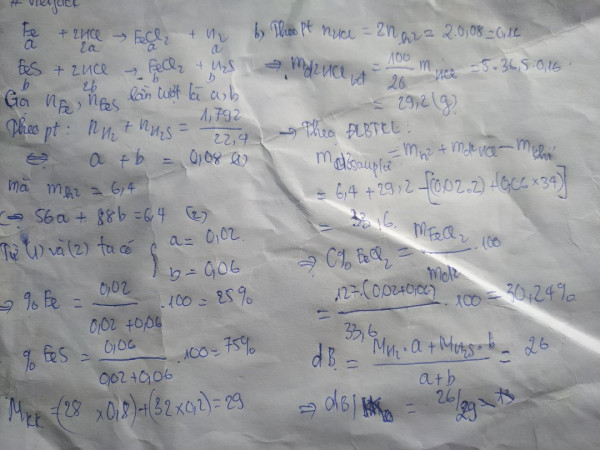 * Vietjack
Fe + 2HCl → FeCl₂ + H₂
a 2a a a
FeS + 2HCl → FeCl₂ + H₂S
b 2b b b
Gọi nFe, nFeS lần lượt là a, b
Theo pt: nH₂ + nH₂S = 1,792/22,4
⇔ a + b = 0,08 (1)
mà mhh = 6,4
⇔ 56a + 88b = 6,4 (2)
Từ (1) và (2) ta có { a = 0,02
b = 0,06
⇒ %Fe = 0,02/(0,02 + 0,06) . 100 = 25%
%FeS = 0,06/(0,02 + 0,06) . 100 = 75%
MKK = (28 × 0,8) + (32 × 0,2) = 29
b, Theo pt nHCl = 2nhh = 2.0,08 = 0,16
⇒ mdd HCl = 100/20 mHCl = 5.36,5.0,16
= 29,2 (g)
→ Theo ĐLBTKL:
= 6,4 + 29,2 - [(0,02.2) + (0,06×34)]
= 33,6.
⇒ C% FeCl₂ = mFeCl₂/mdd . 100
= 127.(0,02+0,06)/33,6 . 100 = 30,24%
dB = (MH₂ . a + MH₂S . b)/(a + b) = 26
⇒ dB/ = 26/29